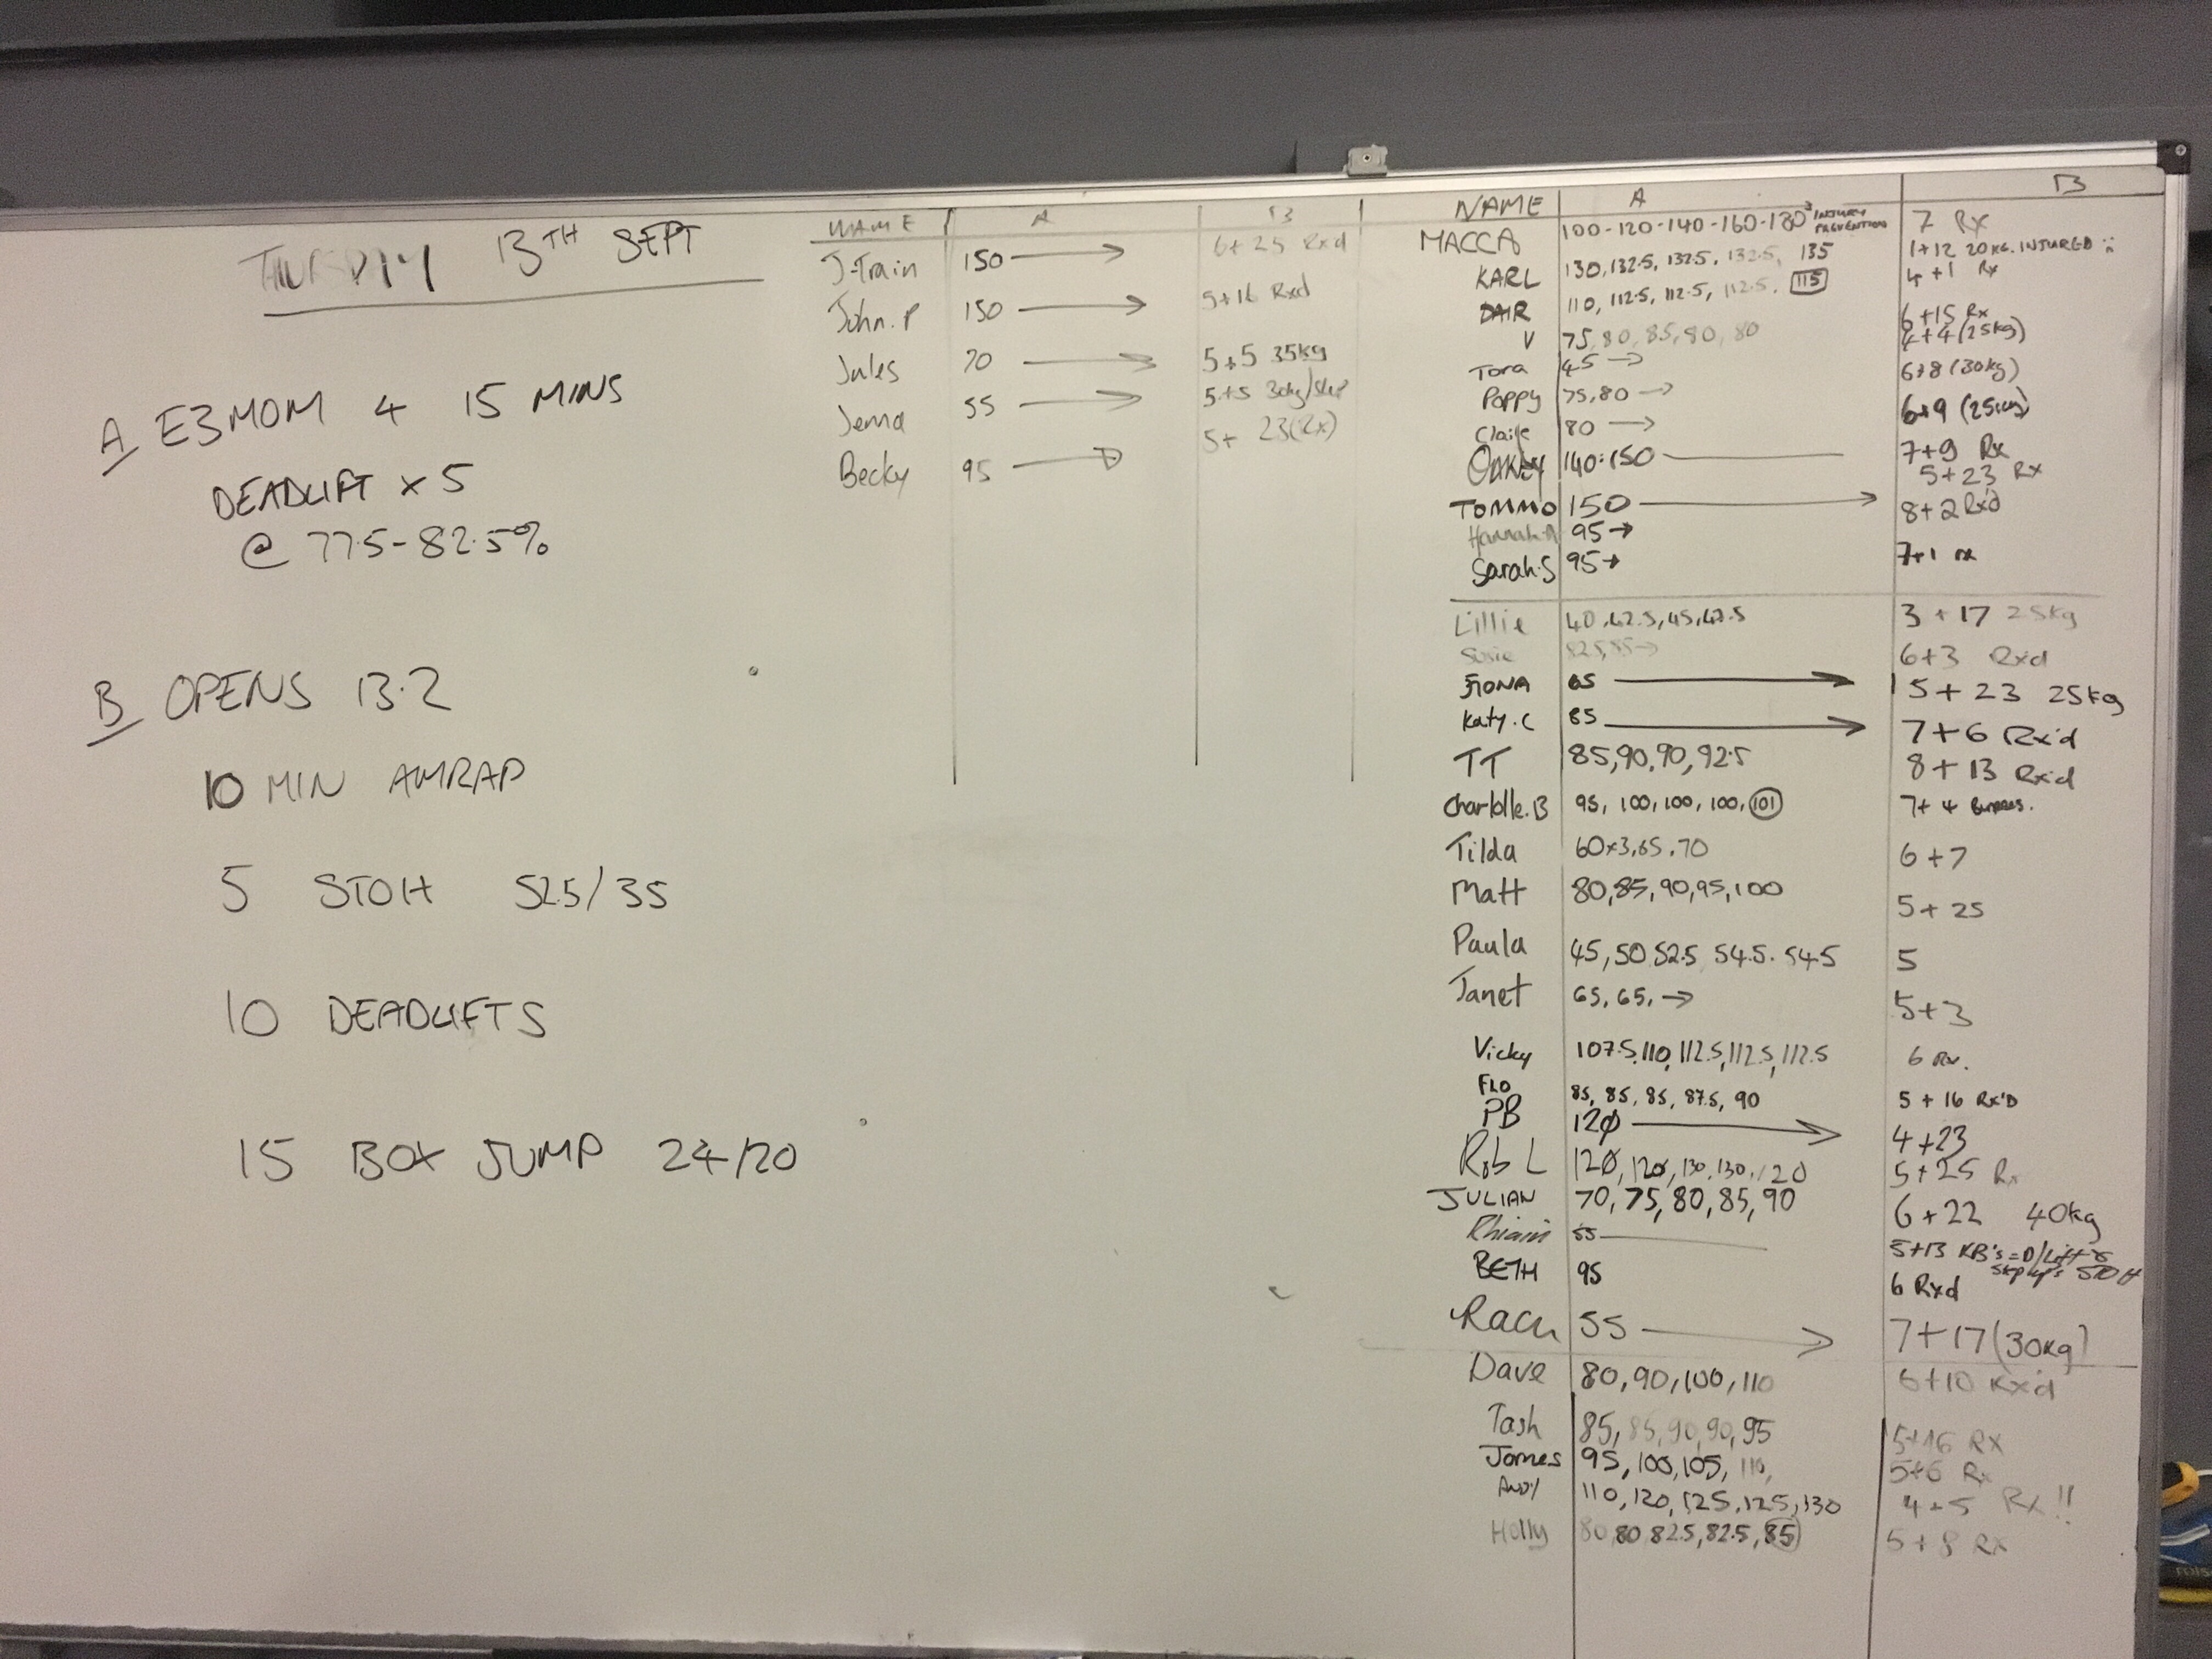 THURSDAY 13TH SEPT
A E3MOM 4 15 MINS
DEADLIFT x 5
@ 77.5-82.5%
B OPENS 13.2
10 MIN AMRAP
5 STOH 52.5/35
10 DEADLIFTS
15 BOX JUMP 24/20
NAME A B
J-Train 150 → 6+25 Rxd
John.P 150 → 5+16 Rxd
Jules 70 → 5+5 35kg
Jema 55 → 5+5 30kg/step
Becky 95 → 5+ 23(Rx)
NAME A B
MACCA 100-120-140-160-130 INJURY PREVENTION 7 Rx
KARL 130, 132.5, 132.5, 132.5, 135 1+12 20KG. INJURED :(
110, 112.5, 112.5, 112.5, 115 4+1 Rx
V 75, 80, 85, 80, 80 6+15 Rx
Tora 45 → 4+4 (25kg)
Poppy 75, 80 → 6+8 (30kg)
Claire 80 → 6+9 (25kg)
OAKEY 140-150 7+9 Rx
TOMMO 150 → 5+23 Rx
Hannah.A 95 → 8+2 Rx'd
Sarah.S 95 → 7+1 rx
Lillie 40, 42.5, 45, 47.5 3+17 25kg
Susie 82.5, 85 → 6+3 Rxd
FIONA 65 → 5+23 25kg
Katy.C 85 → 7+6 Rx'd
TT 85, 90, 90, 92.5 8+13 Rx'd
Charlotte.B 95, 100, 100, 100, 101 7+4 Burpees.
Tilda 60x3, 65, 70 6+7
Matt 80, 85, 90, 95, 100 5+25
Paula 45, 50 52.5 54.5. 54.5 5
Janet 65, 65, → 5+3
Vicky 107.5, 110, 112.5, 112.5, 112.5 6 Rx.
FLO 85, 85, 85, 87.5, 90 5+16 RX'D
PB 120 → 4+23
Rob L 120, 120, 130, 130, 120 5+25 Rx
JULIAN 70, 75, 80, 85, 90 6+22 40kg
Rhiain 55 5+13 KB's = D/Lift & Step up's STOH
BETH 95 6 Rxd
Rach 55 → 7+17 (30kg)
Dave 80, 90, 100, 110 6+10 Rx'd
Tash 85, 85, 90, 90, 95 5+16 RX
James 95, 100, 105, 110, 5+6 Rx
Andy 110, 120, 125, 125, 130 4+5 Rx!!
Holly 80 80 82.5, 82.5, 85 5+8 Rx